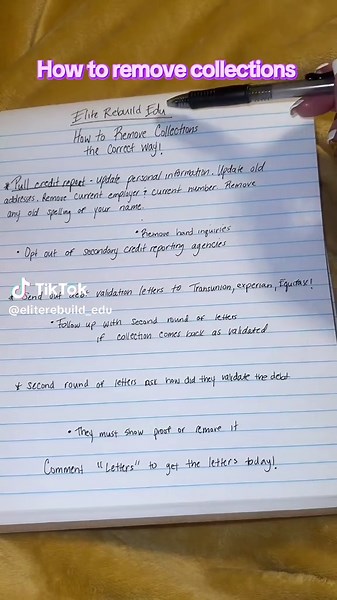 How to remove collections
Elite Rebuild Edu
How to Remove Collections
the Correct Way!
* Pull credit report - Update personal information. Update old
addresses. Remove current employer + current number Remove
any old spelling of your name.
• Remove hard inquiries
• Opt out of secondary credit reporting agencies
TikTok
@eliterebuild_edu
* Send out debt validation letters to Transunion, experian, Equifax!
• Follow up with second round of letters
if collection comes back as validated
* Second round of letters ask how did they validate the debt
• They must show proof or remove it
Comment "Letters" to get the letters today!